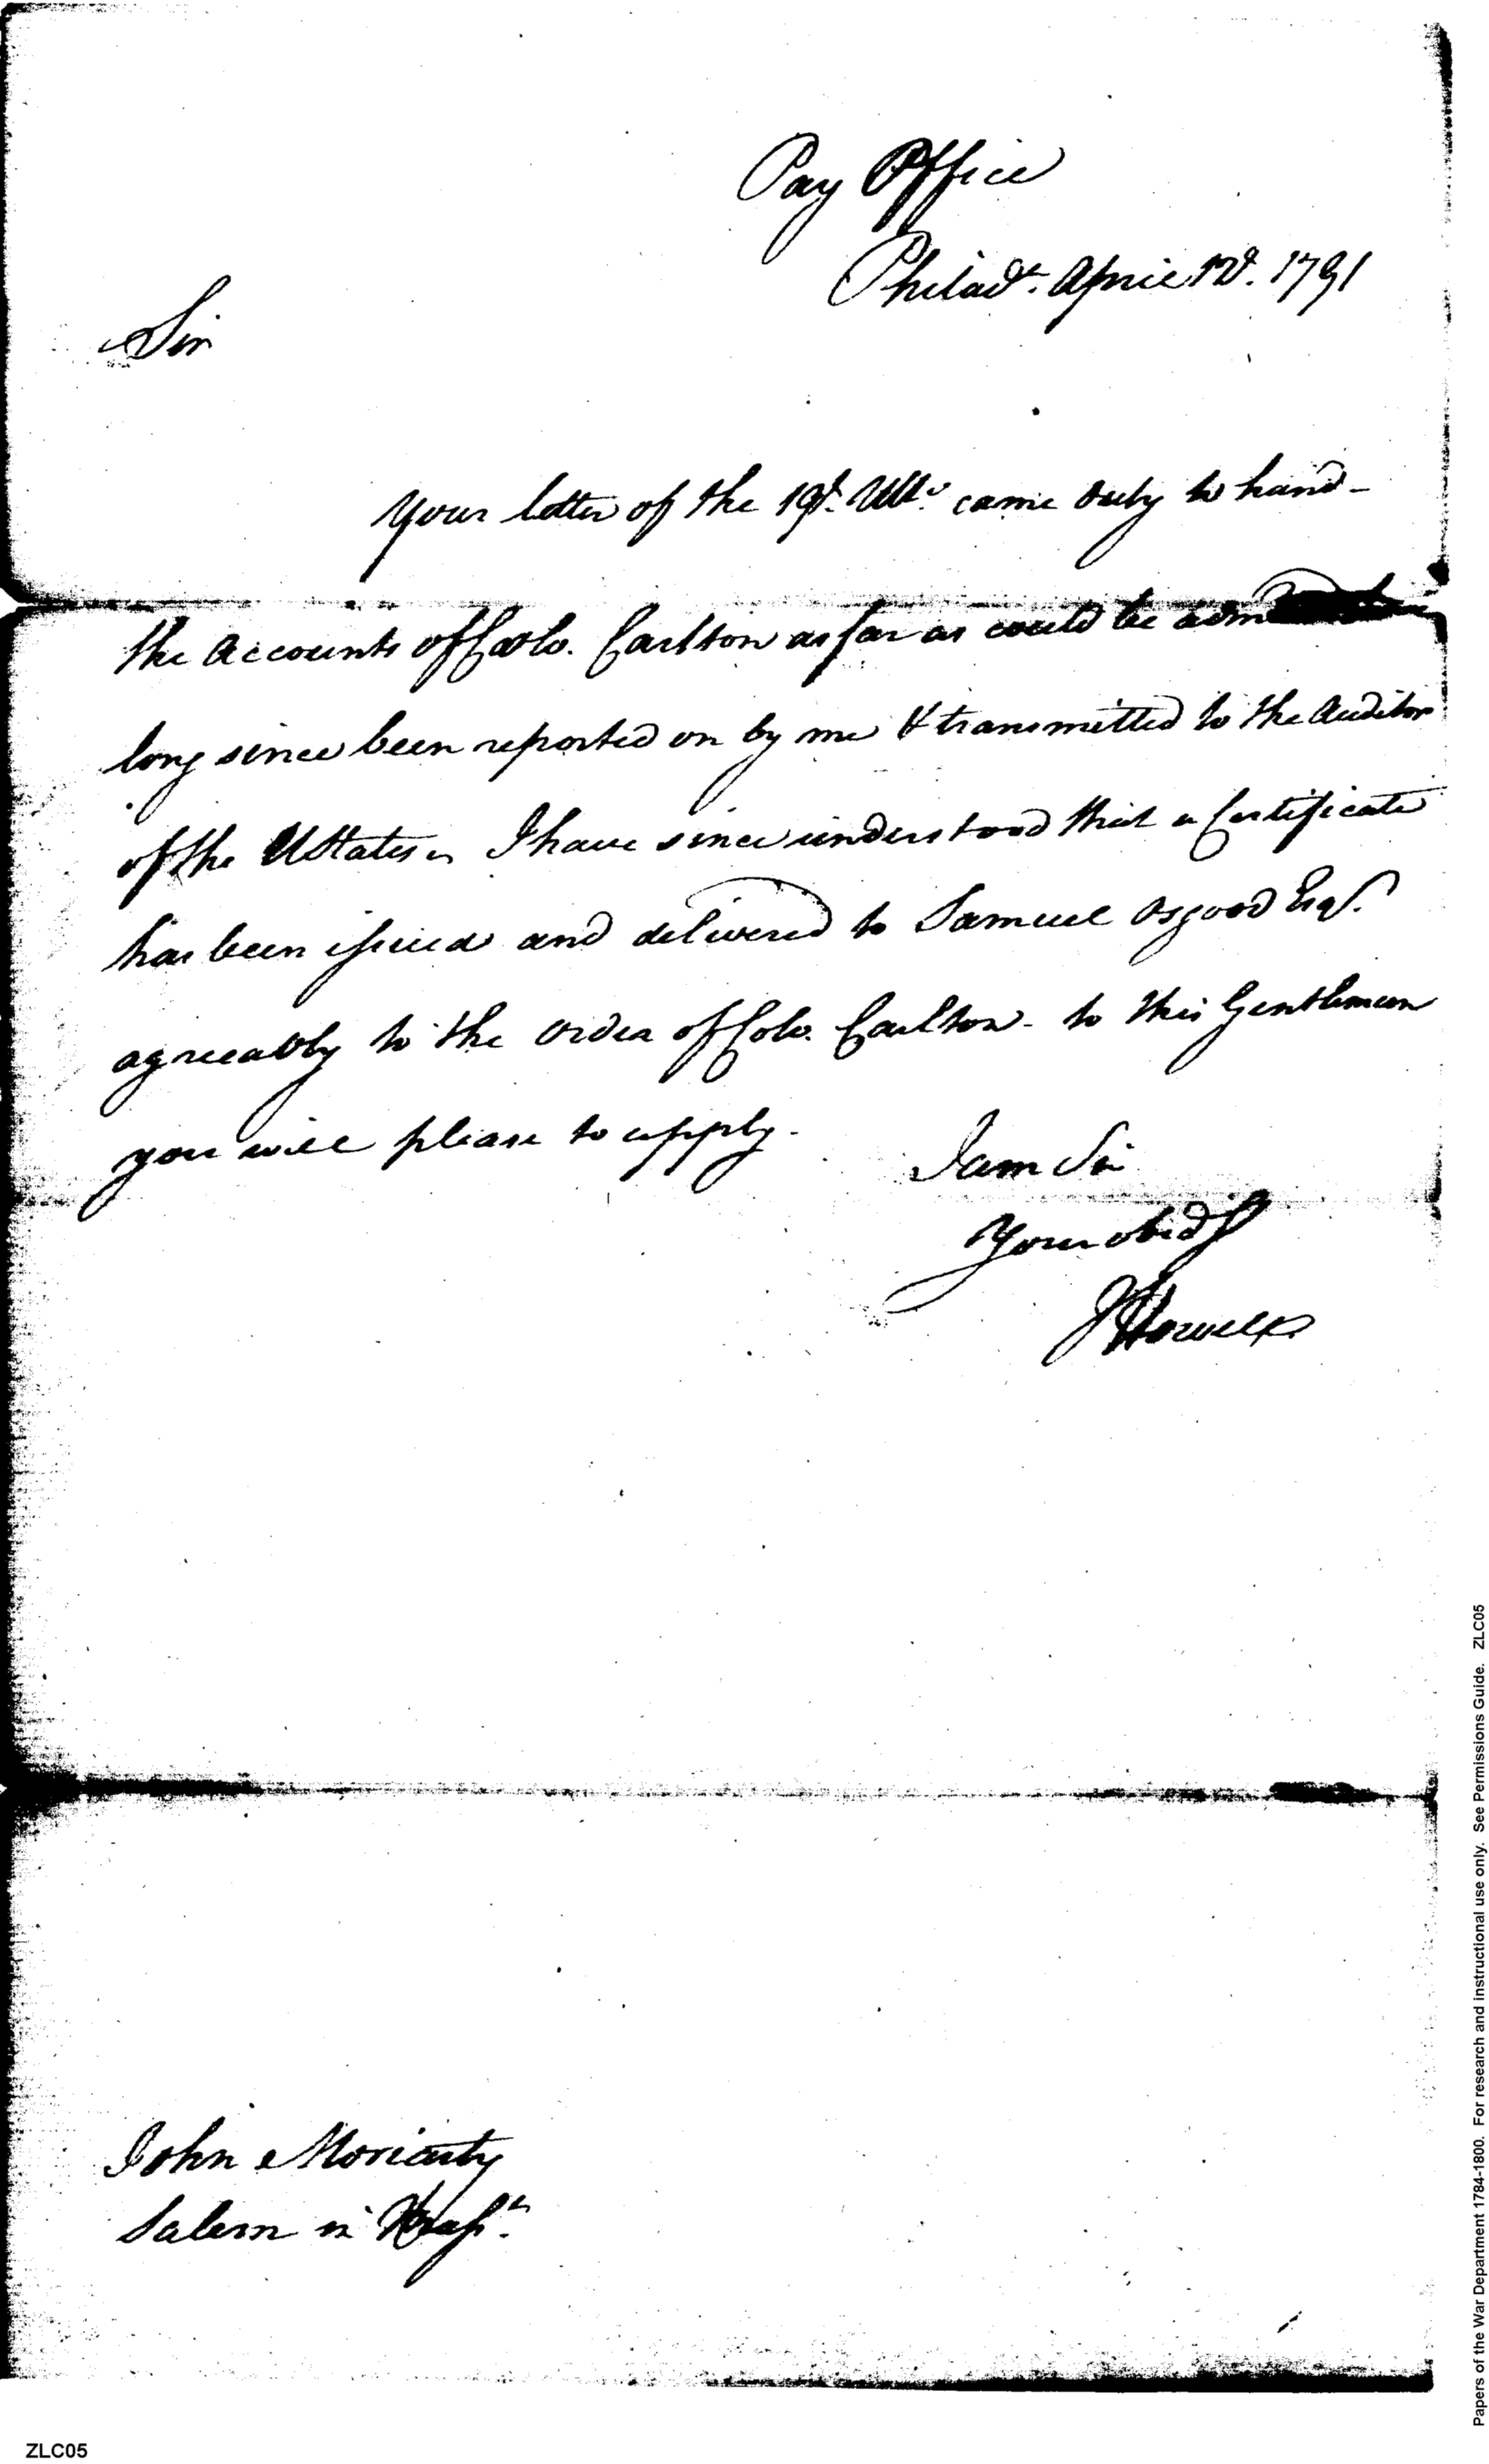 Pay Office
Philada. April 12th. 1791
Sir
Your letter of the 19th. Ulto. came duly to hand-
the Accounts of Colo. Carlton as far as could be
long since been reported on by me & transmitted to the Auditor
of the UStates I have since understood that a Certificate
has been issued and delivered to Samuel Osgood Esqr.
agreeably to the order of Colo. Carlton - to this Gentleman
you will please to apply.
I am Sir
Your obedt
JHowell
John Moriarty
Salem in Masstts.
Papers of the War Department 1784-1800. For research and instructional use only. See Permissions Guide. ZLC05
ZLC05